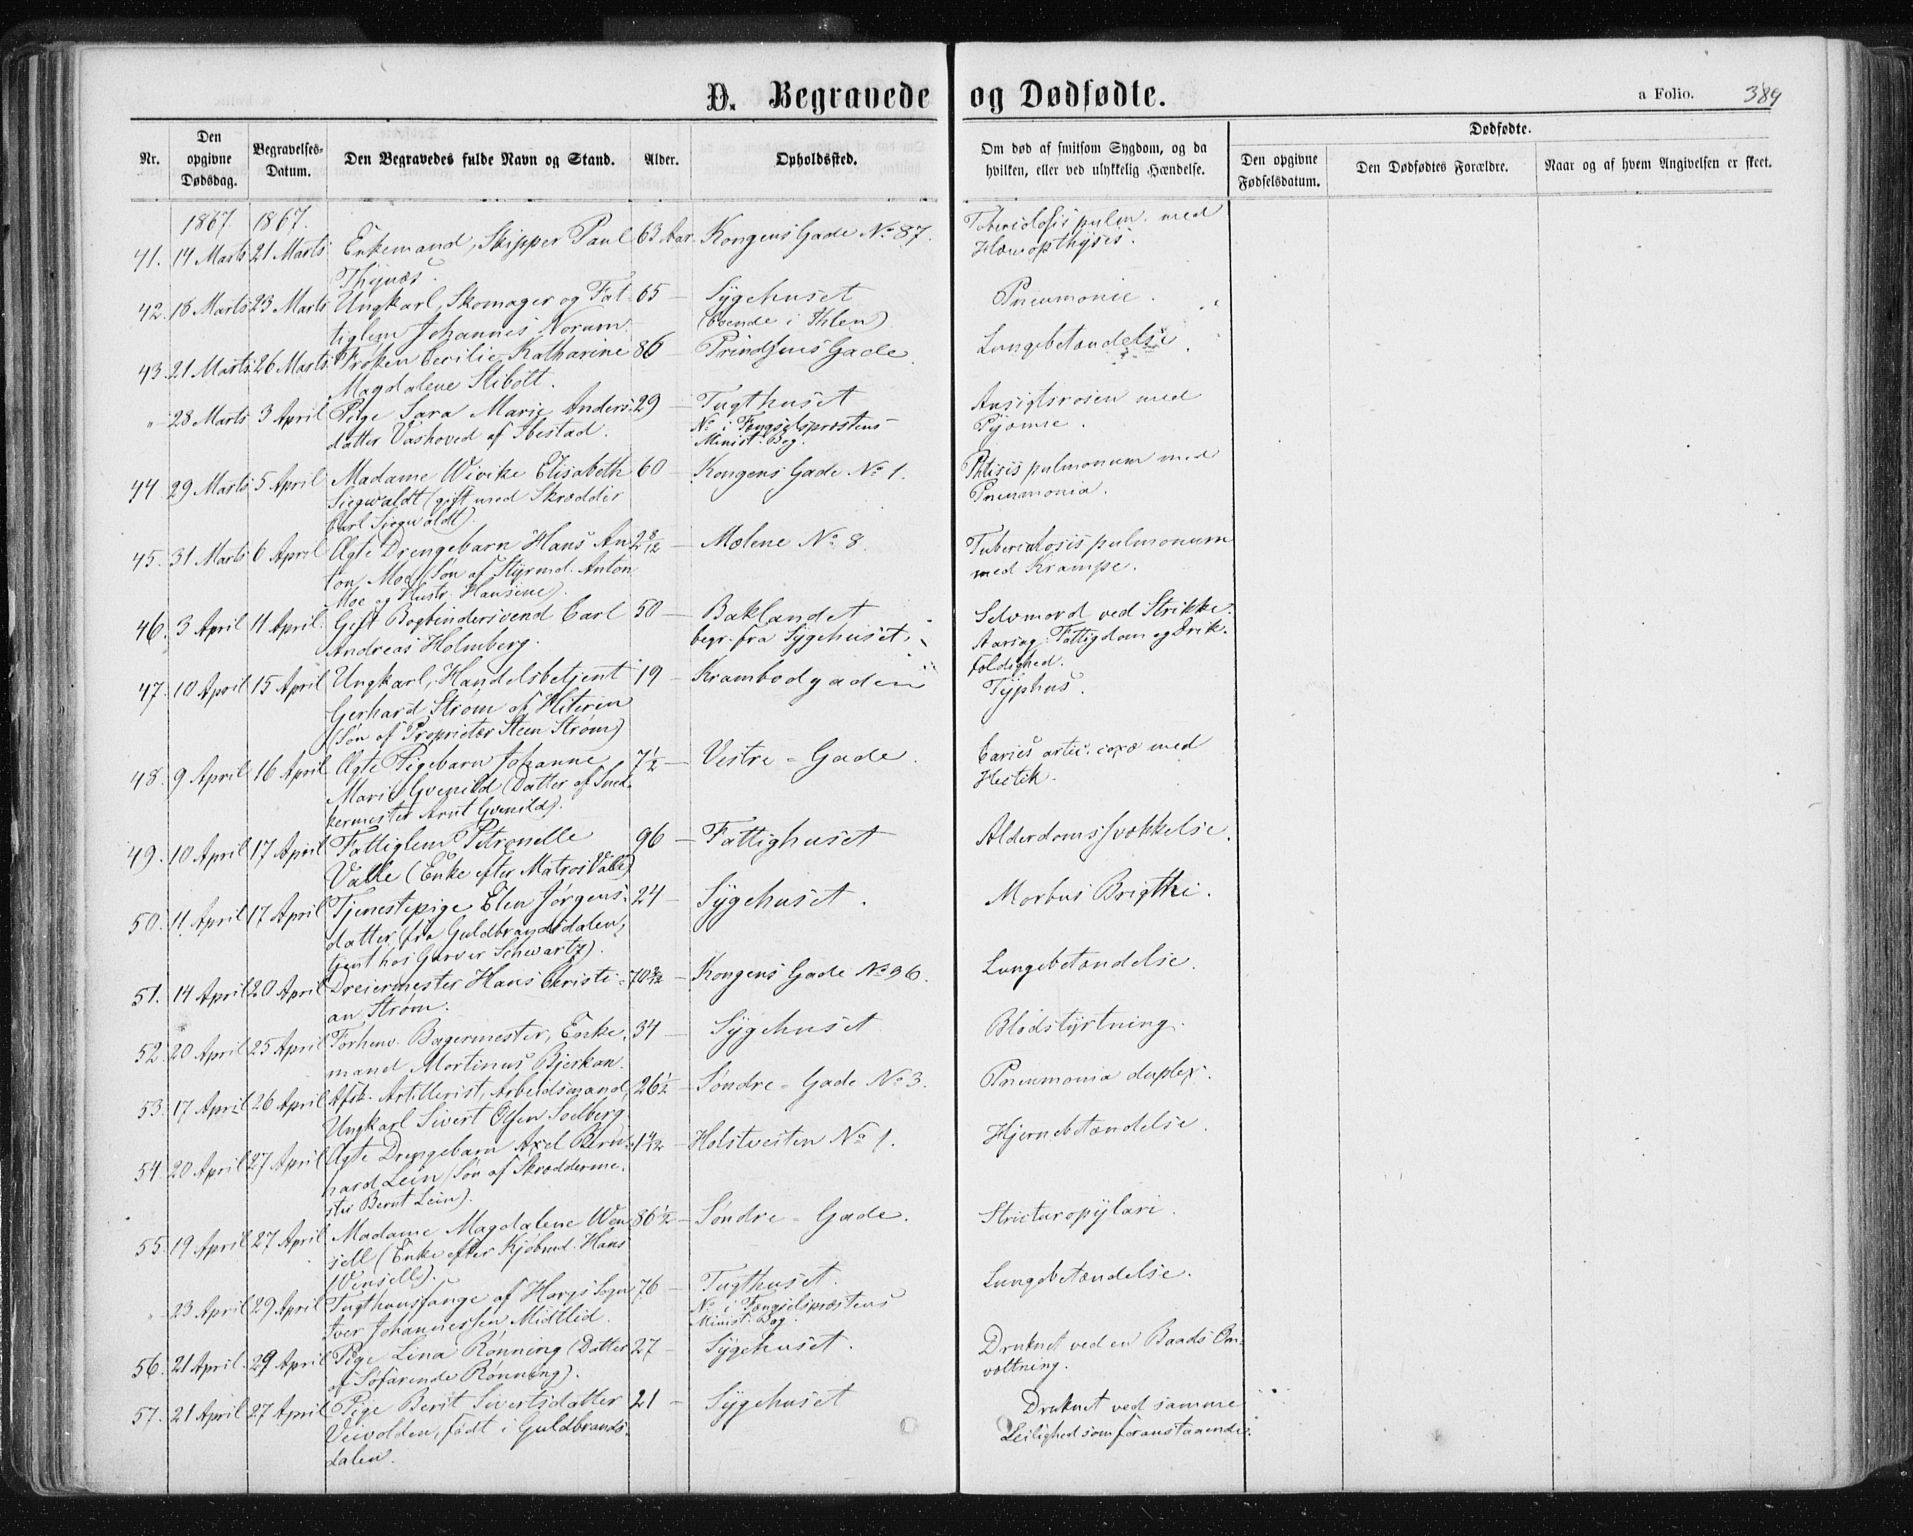 D. Begravede og Dødfødte.
a Folio. 389
Nr.
Den opgivne Dødsdag.
Begravelses-Datum.
Den Begravedes fulde Navn og Stand.
Alder.
Opholdssted.
Om død af smitsom Sygdom, og da hvilken, eller ved ulykkelig Hændelse.
Dødfødte.
Den opgivne Fødselsdatum.
Den Dødfødtes Forældre.
Naar og af hvem Angivelsen er skeet.
1867. 1867.
41. 14 Marts 21 Marts Enkemand, Skipper Paul 63 Aar. Kongens Gade No 87. Tuberculosis pulm. med
Thynæs. Hæmopthysis.
42. 18 Marts 23 Marts Ungkarl, Skomager og Fat- 65 — Sygehuset Pneumonie.
tiglem Johannes Norum. (boende i Ihlen)
43. 21 Marts 26 Marts Frøken Cecilie Katharine 86 — Prindsens Gade. Lungebetændelse
Magdalene Stibolt.
" 28 Marts 3 April Pige Sara Marie Anders- 29 — Tugthuset Ansigtsrosen med
datter Vashoved af Ibestad. No i Fængselspræstens Pyæmie.
Minist. Bog.
44 29 Marts 5 April Madame Wivike Elisabeth 60 — Kongens Gade No 1. Phtisis pulmonum med
Siegwaldt (gift med Skrædder Pneumonia.
Carl Siegwaldt).
45. 31 Marts 6 April Ægte Drengebarn Hans An- 2 8/12 — Mølene No 8. Tuberculosis pulmonum
ton Moe (Søn af Styrmd. Anton med Krampe.
Moe og Hustr. Hansine).
46. 3 April 11 April Gift Bogbindersvend Carl 50 — Baklandet Selvmord ved Strikke.
Andreas Holmberg. begr. fra Sygehuset. Aarsag: Fattigdom og Drik-
fældighed.
47. 10 April 15 April Ungkarl, Handelsbetjent 19 — Krambodgaden Typhus.
Gerhard Strøm af Hiteren
(Søn af Proprietær Steen Strøm)
48. 9 April 16 April Ægte Pigebarn Johanne 7 1/2 — Vestre-Gade. Caries artic. coxæ med
Marie Gvenild (Datter af Sned- Hectik.
kermester Arnt Gvenild).
49. 10 April 17 April Fattiglem Petronelle 96 — Fattighuset Alderdomssvækkelse.
Valle (Enke efter Matros Valle)
50. 11 April 17 April Tjenestepige Elen Jørgens- 24 — Sygehuset. Morbus Brigthi.
datter, fra Guldbrandsdalen,
tjent hos Garver Schwartz).
51. 14 April 20 April Dreiermester Hans Christi- 70 9/12 — Kongens Gade No 36. Lungebetændelse.
an Strøm.
52. 20 April 25 April Forhenv. Bagermester, Enke- 34 — Sygehuset Blodstyrtning.
mand Mortinus Bjerkan.
53. 17 April 26 April Afsk. Artillerist, Arbeidsmand, 26 1/2 — Søndre-Gade No 3. Pneumonia duplex.
Ungkarl Sivert Olsen Solberg.
54. 20 April 27 April Ægte Drengebarn Axel Bern- 1 4/12 — Holstvesten No 1. Hjernebetændelse.
hard Lein (Søn af Skrædderme-
ster Bernt Lein).
55. 19 April 27 April Madame Magdalene Wen- 86 1/2 — Søndre-Gade. Strictura pylari.
sell (Enke efter Kjøbmd. Hans
Wensell).
" 23 April 29 April Tugthusfange af Horgs Sogn 76 — Tugthuset. Lungebetændelse.
Iver Johannessen Midtlid. No i Fængselspræstens
Minist. Bog.
56. 21 April 29 April Pige Lina Rønning (Datter 27 — Sygehuset. Druknet ved en Baads Om-
af Søfarende Rønning). væltning.
57. 21 April 27 April Pige Berit Sivertsdatter 21 — Sygehuset Druknet ved samme
Veivolden, født i Guldbrands- Leilighed som foranstaaende.
dalen.